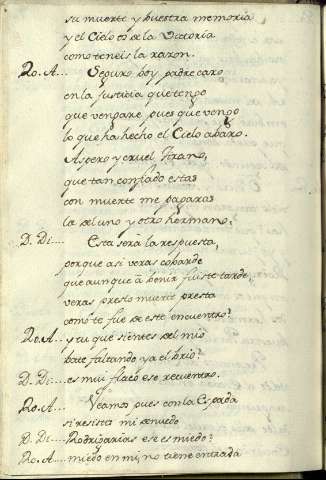 su muerte y vuestra memoria
y el Cielo os dé la Victoria
como teneis la razon.
Ro. A... Seguro voy padre caro
en la justicia que tengo
que vengare, pues que vengo
lo que ha hecho el Cielo abaro.
Aspero y cruel Tirano,
que tan confiado estas
con muerte me pagaras
la del uno y otro hermano.
D. Di.... Esta será la respuesta,
porque asi veras cobarde
que aunque á benir fuiste tarde,
veras presto muerte presta
como te fue de este encuentro?
Ro. A... y tu que sientes del mio
bate faltando ya el brio?
D. Di.... es muy flaco ese recuentro.
Ro. A... Veamos pues con la Espada
si resistes mi denuedo
D. Di.... Rodrigarias ese es miedo?
Ro. A... miedo en mi, no tiene entrada